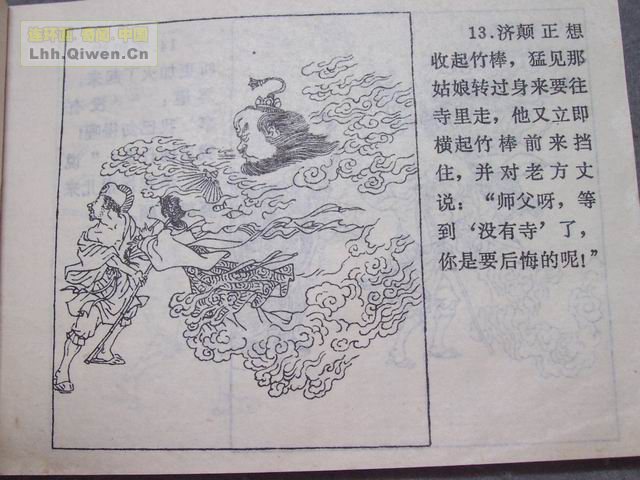 连环画 奇闻 中国
Lhh.Qiwen.Cn
13.济颠正想
收起竹棒，猛见那
姑娘转过身来要往
寺里走，他又立即
横起竹棒前来挡
住，并对老方丈
说：“师父呀，等
到‘没有寺’了，
你是要后悔的呢！”